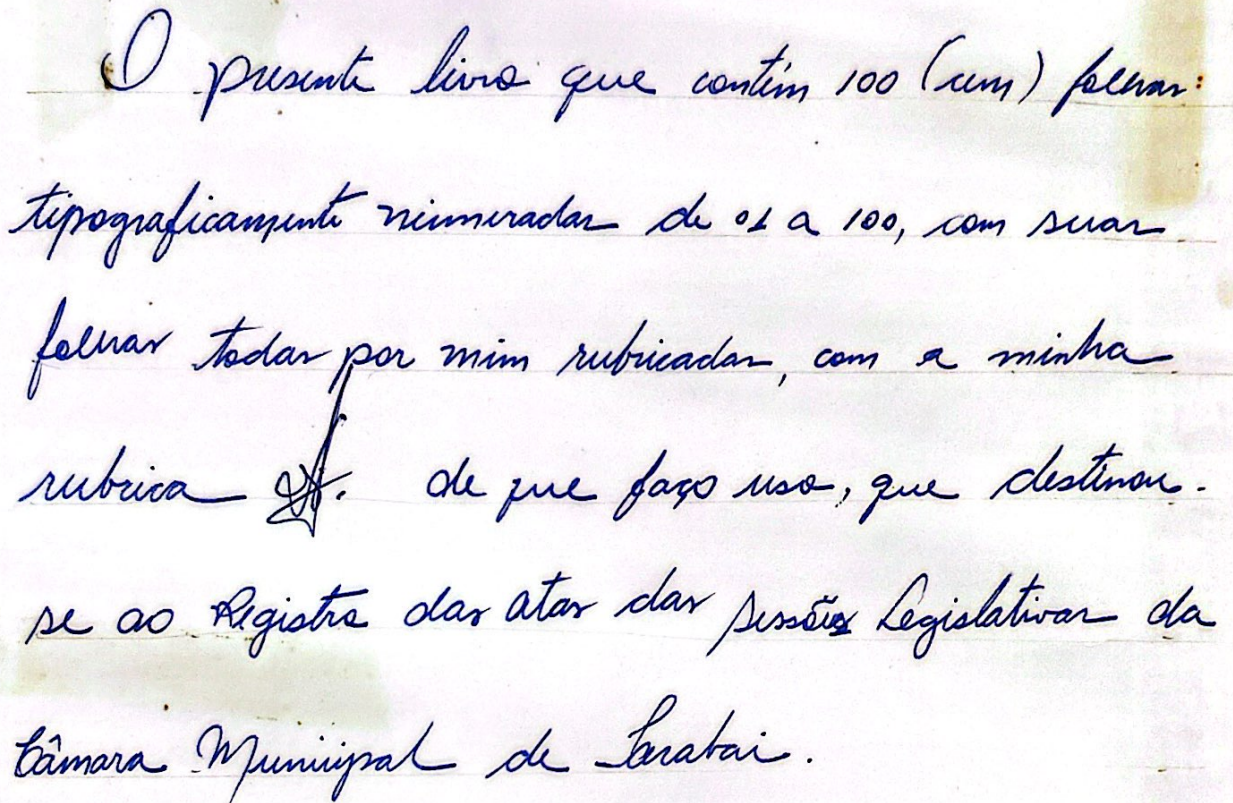 O presente livro que contém 100 (cem) folhas
tipograficamente numeradas de 01 a 100, com suas
folhas todas por mim rubricadas, com a minha
rubrica de que faço uso, que destinou-
se ao Registro das atas das sessões Legislativas da
Câmara Municipal de